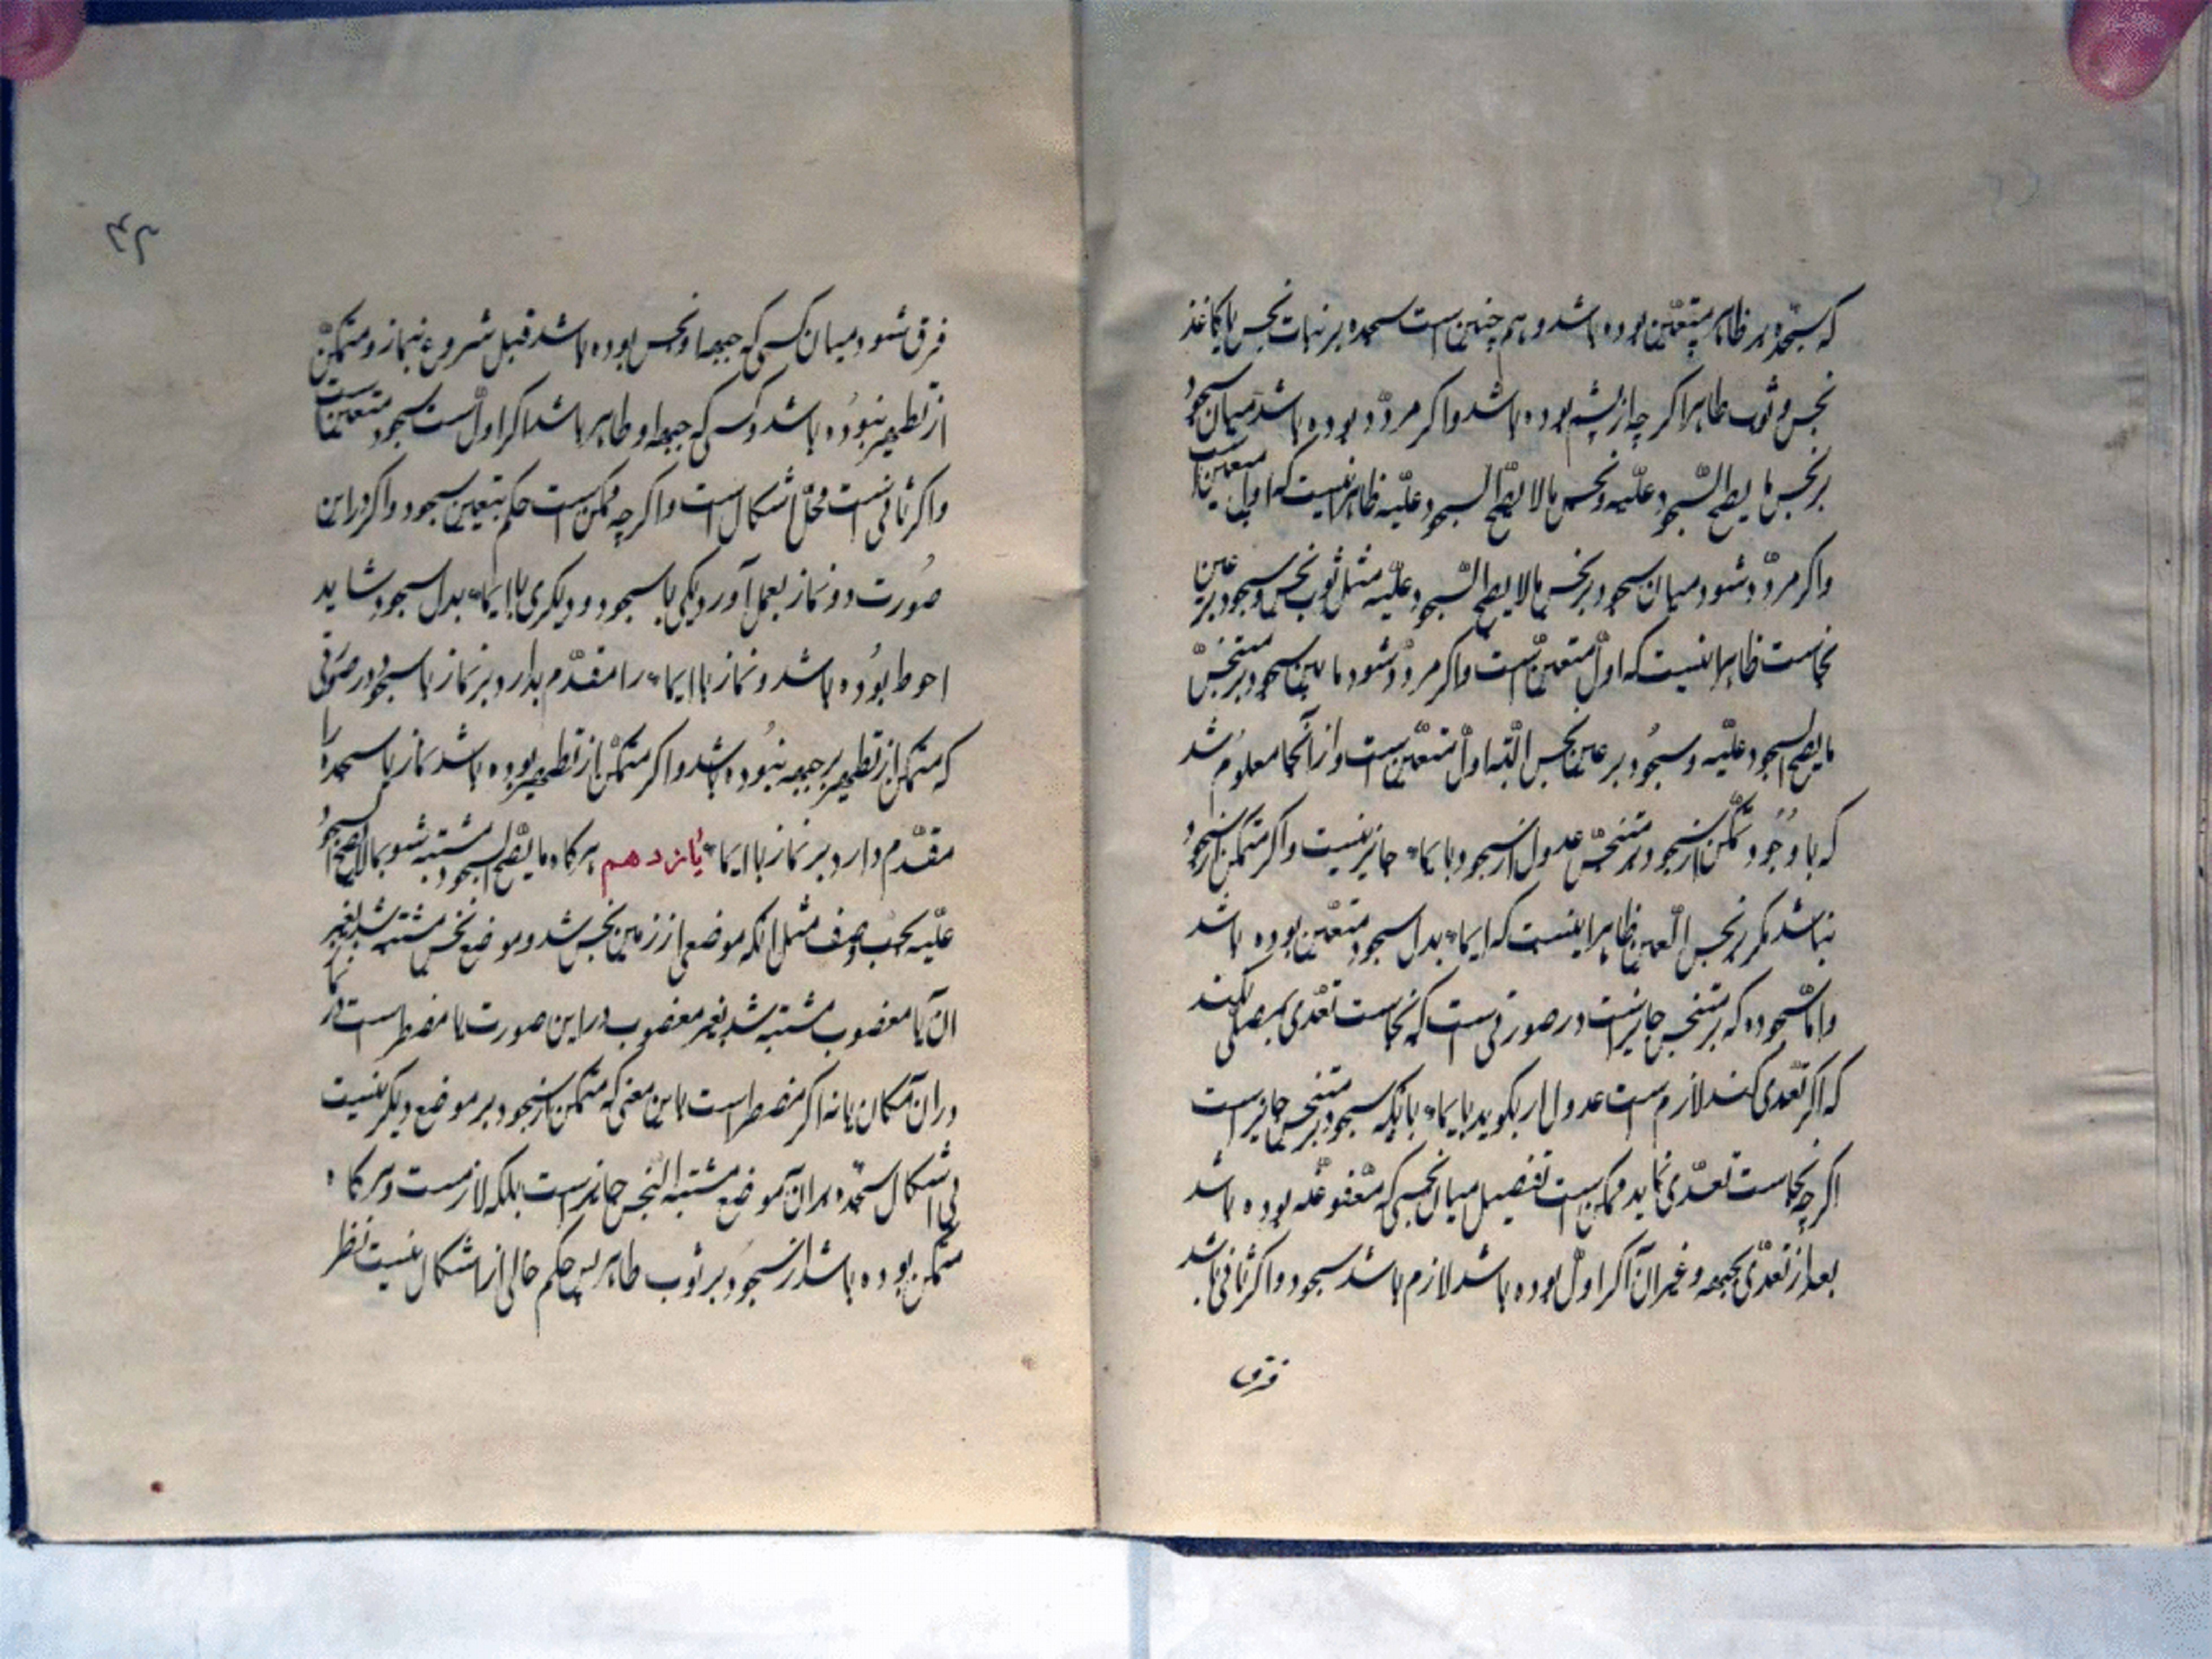 که سجده بر ظاهر متعین بوده باشد و هم چنین است سجده بر نبات نجس یا کاغذ
نجس و ثوب طاهر اکر چه از پشم بوده باشد و اکر مردّد بوده باشد میان سجود
بر نجس ما یصح السّجود علیه و نجس مالا یصحّ السجود علیه ظاهر اینست که اول متعین است
و اکر مردّد شود میان سجود بر نجس مالا یصح السّجود علیه مثل ثوب نجس و سجود بر عین
نجاست ظاهر اینست که اول متعین است و اکر مردّد شود ما بین سجود بر متنجّس
ما یصح السجود علیه و سجود بر عین نجس البّته اول متعین است و از آنجا معلوم شد
که با وجود تمکّن از سجود بر متنجّس عدول از سجود بایماء جایز نیست و اکر متمکن از سجود
نباشد مکر بر نجس العین ظاهر اینست که ایماء بدل سجود متعین بوده باشد
و امّا سجود که بر متنجس جایز است در صورتی است که نجاست تعدّی بمصلّی نکند
که اکر تعدّی کند لازم است عدول بایماء سجود بر متنجس جایز است
اکر چه نجاست تعدّی نماید و ممکن است تفصیل میان نجسی که معفو عنه بوده باشد
بعد از تعدّی بجبهه و غیر آن اکر اول بوده باشد لازم باشد سجود و اکر ثانی باشد
فرق
فرق شود میان کسی که جبهه او نجس بوده باشد قبل شروع بنماز و متمکّن
از تطهیر نبوده باشد و کسی که جبهه او طاهر باشد اکر اول است سجود متعین است
و اکر ثانی است محلّ اشکال است و اکر چه ممکن است حکم بتعیین سجود و اکر در این
صورت دو نماز بعمل آورد یکی با سجود و دیکری با ایماء بدل سجود شاید
احوط بوده باشد و نماز با ایماء را مقدّم بدارد بر نماز با سجود در صورتی
که متمکن از تطهیر جبهه نبوده باشد و اکر متمکّن از تطهیر بوده باشد نماز با سجده را
مقدّم دارد بر نماز با ایماء یازدهم هرکاه ما یصّح السجود مشتبه شود بمالا یصح السجود
علیه بحسب وصف مثل انکه موضعی از زمین نجس شد و موضع نجس مشتبه شد بغیر
ان یا مغصوب مشتبه شد بغیر مغصوب در این صورت یا مضطر است در نماز
در آن مکان یا نه اکر مضطر است باین معنی که متمکن از سجود بر موضع دیکر نیست
بی اشکال سجده بر آن موضع مشتبه النجس جایز است بلکه لازمست و هرکاه
متمکن بوده باشد از سجود بر ثوب طاهر پس حکم خالی از اشکال نیست نظر